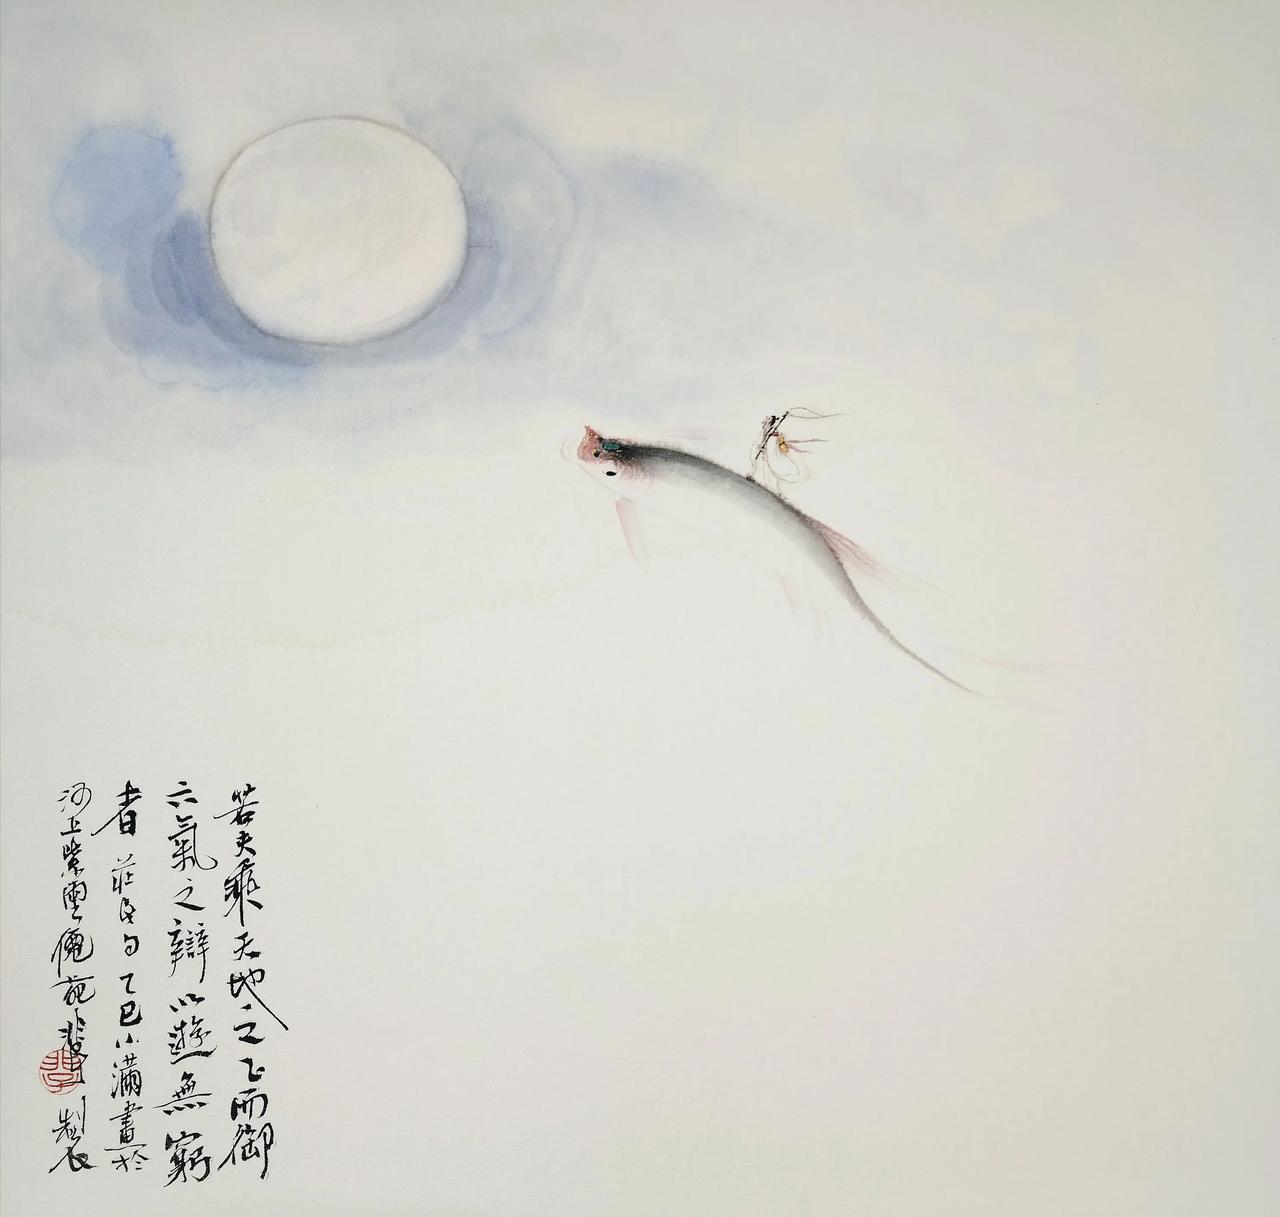 若夫乘天地之正而御
六氣之辯以遊無窮
者 莊句 乙巳小滿畫於
河上紫雲 製